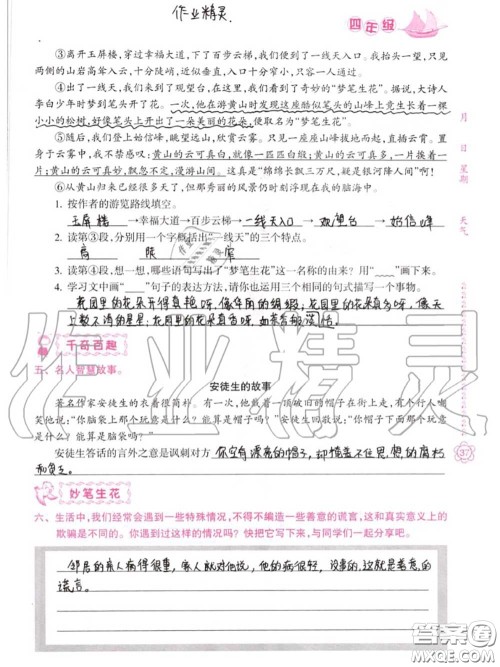 作业精灵
四年级
③离开玉屏楼,穿过幸福大道,下了百步云梯,我们便到了一线天入口。我抬头一望,只见两边的山岩高耸入云,十分陡峭,近似垂直,入口十分窄小,只容一个人通过。
④出了一线天,我们来到了观望台,在这里,我们看到了奇妙的“梦笔生花”。据说,大诗人李白少年时梦到笔头开了花。一次,他在游黄山时发现这座酷似笔头的山峰上竟生长着一棵小小的松树,好像笔头上开出了一朵美丽的花朵,便取名为“梦笔生花”。
⑤随后,我们登上始信峰,眺望远山,欣赏云雾。只见一座座山峰拔地而起,云烟缭绕。置身于云雾中,我不禁感叹:黄山的云可真白,就像一匹匹白缎;黄山的云可真多,一片挨着一片;黄山的云可真妙,飘忽不定,漫游山间。这真是“绵绵长飘三万尺,疑是银河降人间”啊!
⑥从黄山归来已经很多天了,但那秀丽的风景仍时刻浮现在我的脑海中。
1. 按作者的游览路线填空。
玉屏楼→幸福大道→百步云梯→一线天入口→观望台→始信峰
2. 读第③段,分别用一个字概括出“一线天”的三个特点。
高 窄
3. 读第④段,想一想,哪些语句写出了“梦笔生花”这一名称的由来?用“___”画出来。
4. 学习文中画“﹏﹏”句子的表达方法,请你也运用三个相同的句式描写一个事物。
花园里的花朵开得真艳呀,像华丽的绸缎;花园里的花朵真多呀,像天
上数不清的星星;花园里的花朵真香呀,
千奇百趣
五、名人智慧故事。
安徒生的故事
著名作家安徒生的衣着很简朴。有一次,他戴着一顶破旧的帽子在街上行走,有个过路人嘲笑他:“你脑袋上那个玩意儿是什么?能算是帽子吗?”安徒生回敬道:“你帽子下面那个玩意儿是什么?能算是脑袋吗?”
安徒生答话的言外之意是讽刺对方 你空有漂亮的帽子,却掩盖不住思想的腐朽
和贫乏。
37
妙笔生花
六、生活中,我们经常会遇到一些特殊情况,不得不编造一些善意的谎言,这和真实意义上的欺骗是不同的。你遇到过这样的情况吗?快把它写下来,与同学们一起分享吧。
邻居的亲人病得很重,家人就对他说,他的病很轻,没事的,这就是善意的
谎言。
月
日
星期
天气
作业精灵
答案圈
MXQE.COM